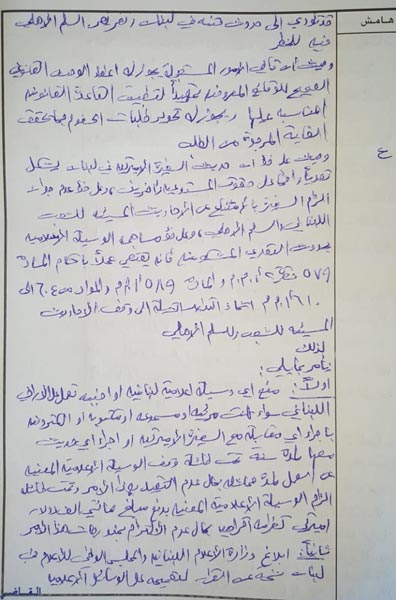 هامش
قد تؤدي الى حدوث فتنة في لبنان وتعريض السلم الاهلي
فيه للخطر
وحيث ان قاضي الامور المستعجلة يجوز له اعطاء الوصف القانوني
الصحيح للوقائع المعروضة تمهيداً لتطبيق القاعدة القانونية
المناسبة عليها ويجوز له تحوير طلبات الخصوم بما يحقق
الغاية المرجوة من الطلب
وحيث على فرض ان حديث السفيرة الاميركية في لبنان يشكل
تعدياً واقعاً على حقوق المستدعي
الزام السفيرة بالامتناع عن الاحاديث المسيئة للشعب
اللبناني والسلم الاهلي وعلى فرض مساهمة الوسيلة الاعلامية
بحدوث التعدي المشكو منه فانه يقتضي عملاً باحكام المادة
٥٧٩ فقرة ٢ أ.م.م والمادة ٥٨٩ أ.م.م والمواد من ٦٠٤ الى
٦١٠ أ.م.م اتخاذ التدابير الآيلة الى وقف الاحاديث
المسيئة للشعب وللسلم الاهلي
لذلك
نأمر بما يلي:
اولاً: منع اي وسيلة اعلامية لبنانية او اجنبية تعمل على الاراضي
اللبناني سواء كانت مرئية او مسموعة او مكتوبة او الكترونية
باجراء اي مقابلة مع السفيرة الاميركية او اجراء اي حديث
معها لمدة سنة تحت طائلة وقف الوسيلة الاعلامية المعنية
عن العمل لمدة مماثلة بحال عدم التقيد بهذا الامر وتحت طائلة
الزام الوسيلة الاعلامية المعنية بدفع مبلغ مائتي الف دولار
اميركي كغرامة اكراهية بحال عدم الالتزام بمندرجات هذا الامر
ثانياً: ابلاغ وزارة الاعلام اللبنانية والمجلس الوطني للاعلام في
لبنان نسخة عن القرار لتعميمه على الوسائل الاعلامية
القاضي